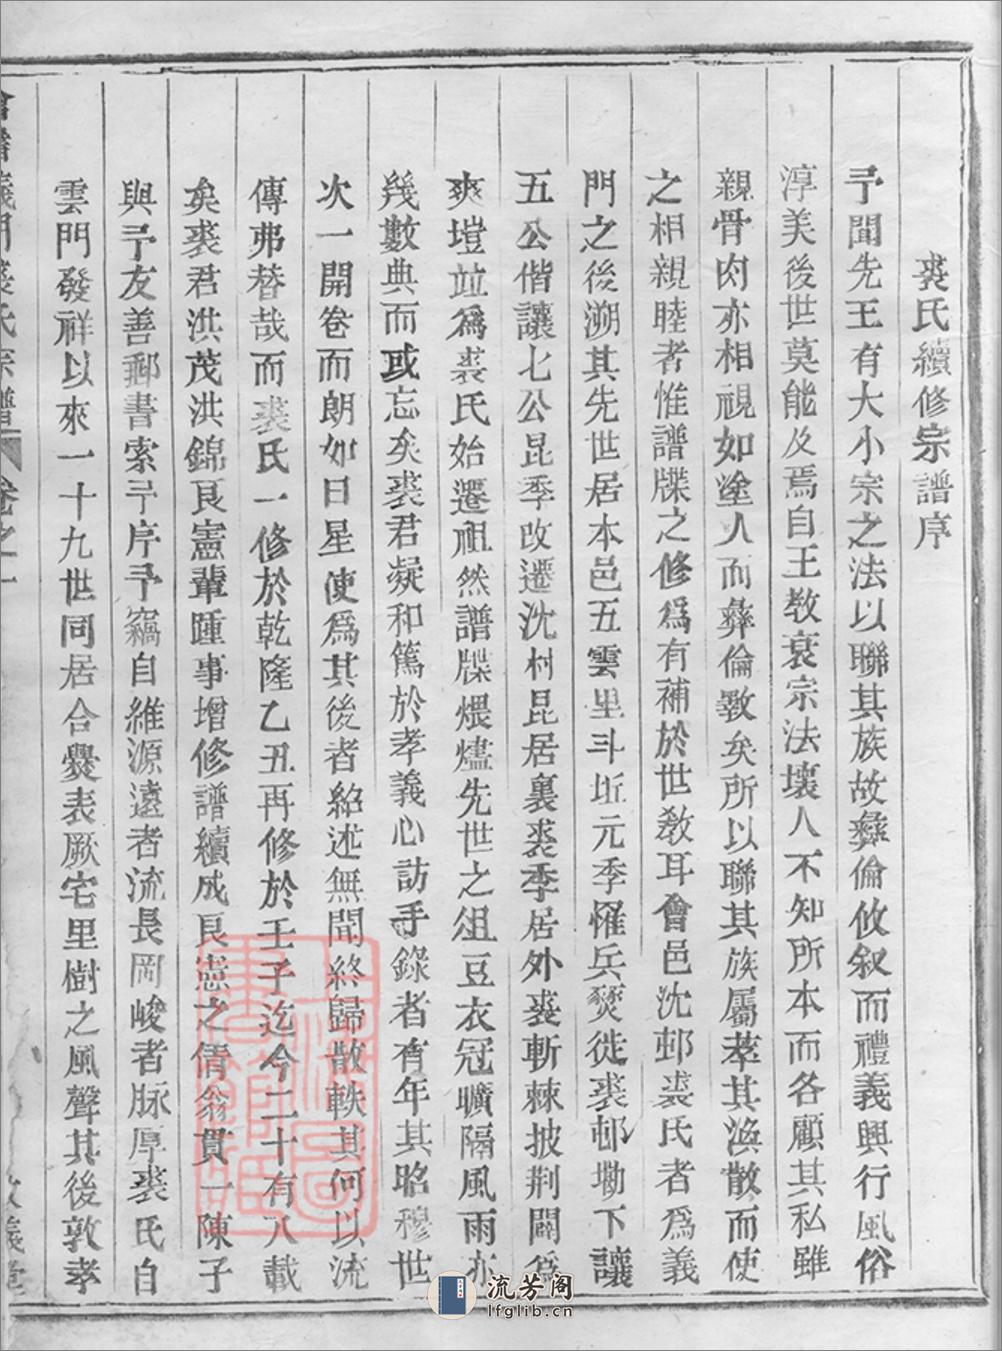 裘氏續修宗譜序
予聞先王有大小宗之法以聯其族故彝倫攸叙而禮義興行風俗
淳美後世莫能及焉自王敎衰宗法壞人不知所本而各顧其私雖
親骨肉亦相視如塗人而彝倫斁矣所以聯其族屬萃其渙散而使
之相親睦者惟譜牒之修爲有補於世敎耳會邑沈邨裘氏者爲義
門之後溯其先世居本邑五雲里斗坵元季罹兵燹徙裘邨墈下讓
五公偕讓七公昆季改遷沈村昆居裏裘季居外裘斬棘披荆闢爲
爽塏竝爲裘氏始遷祖然譜牒煨燼先世之俎豆衣冠曠隔風雨亦
幾數典而或忘矣裘君凝和篤於孝義心訪手錄者有年其昭穆世
次一開卷而朗如日星使爲其後者紹述無聞終歸散軼其何以流
傳弗替哉而裘氏一修於乾隆乙丑再修於壬子迄今二十有八載
矣裘君洪茂洪錦良憲輩踵事增修譜續成良憲之倩翁貫一陳子
與予友善郵書索予序予竊自維源遠者流長岡峻者脉厚裘氏自
雲門發祥以來一十九世同居合爨表厥宅里樹之風聲其後敦孝
會稽義門裘氏宗譜 卷之一 敦義堂
流芳阁
lfglib.cn